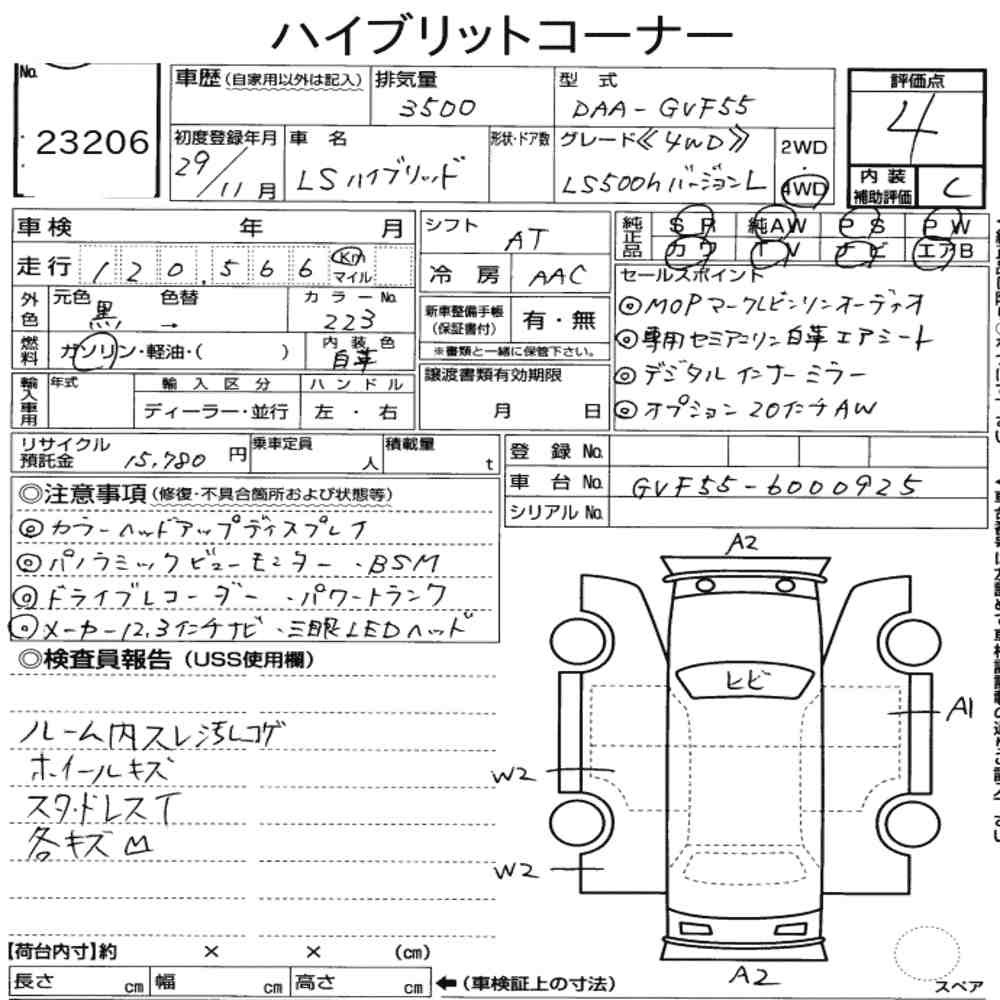 ハイブリットコーナー
No. 23206
車歴(自家用以外は記入)
排気量 3500
型 式 DAA-GVF55
評価点 4
内装補助評価 C
初度登録年月 29/11月
車 名 LSハイブリッド
形状・ドア数
グレード《4WD》
LS500h バージョンL
2WD・4WD
車検 年 月
走行 120,566 Km マイル
外色 元色 黒 色替 →
カラーNo. 223
燃料 ガソリン・軽油・( )
内装色 白革
輸入車用 年式
輸入区分 ディーラー・並行
ハンドル 左・右
シフト AT
冷房 AAC
新車整備手帳(保証書付) 有・無
※書類と一緒に保管下さい。
譲渡書類有効期限
月 日
純正品 SR 純AW PS PW
カワ TV ナビ エアB
セールスポイント
◎MOPマークレビンソンオーディオ
◎専用セミアニリン白革エアシート
◎デジタルインナーミラー
◎オプション20インチAW
リサイクル預託金 15,780円
乗車定員 人
積載量 t
登録 No.
車台 No. GVF55-6000925
シリアル No.
◎注意事項(修復・不具合箇所および状態等)
◎カラーヘッドアップディスプレイ
◎パノラミックビューモニター・BSM
◎ドライブレコーダー・パワートランク
◎メーカー12.3インチナビ・三眼LEDヘッド
◎検査員報告(USS使用欄)
ルーム内スレ汚レコゲ
ホイールキズ
スタッドレスT
各キズM
A2
ヒビ
A1
W2
W2
A2
スペア
【荷台内寸】約 × × (cm)
長さ cm 幅 cm 高さ cm
←(車検証上の寸法)